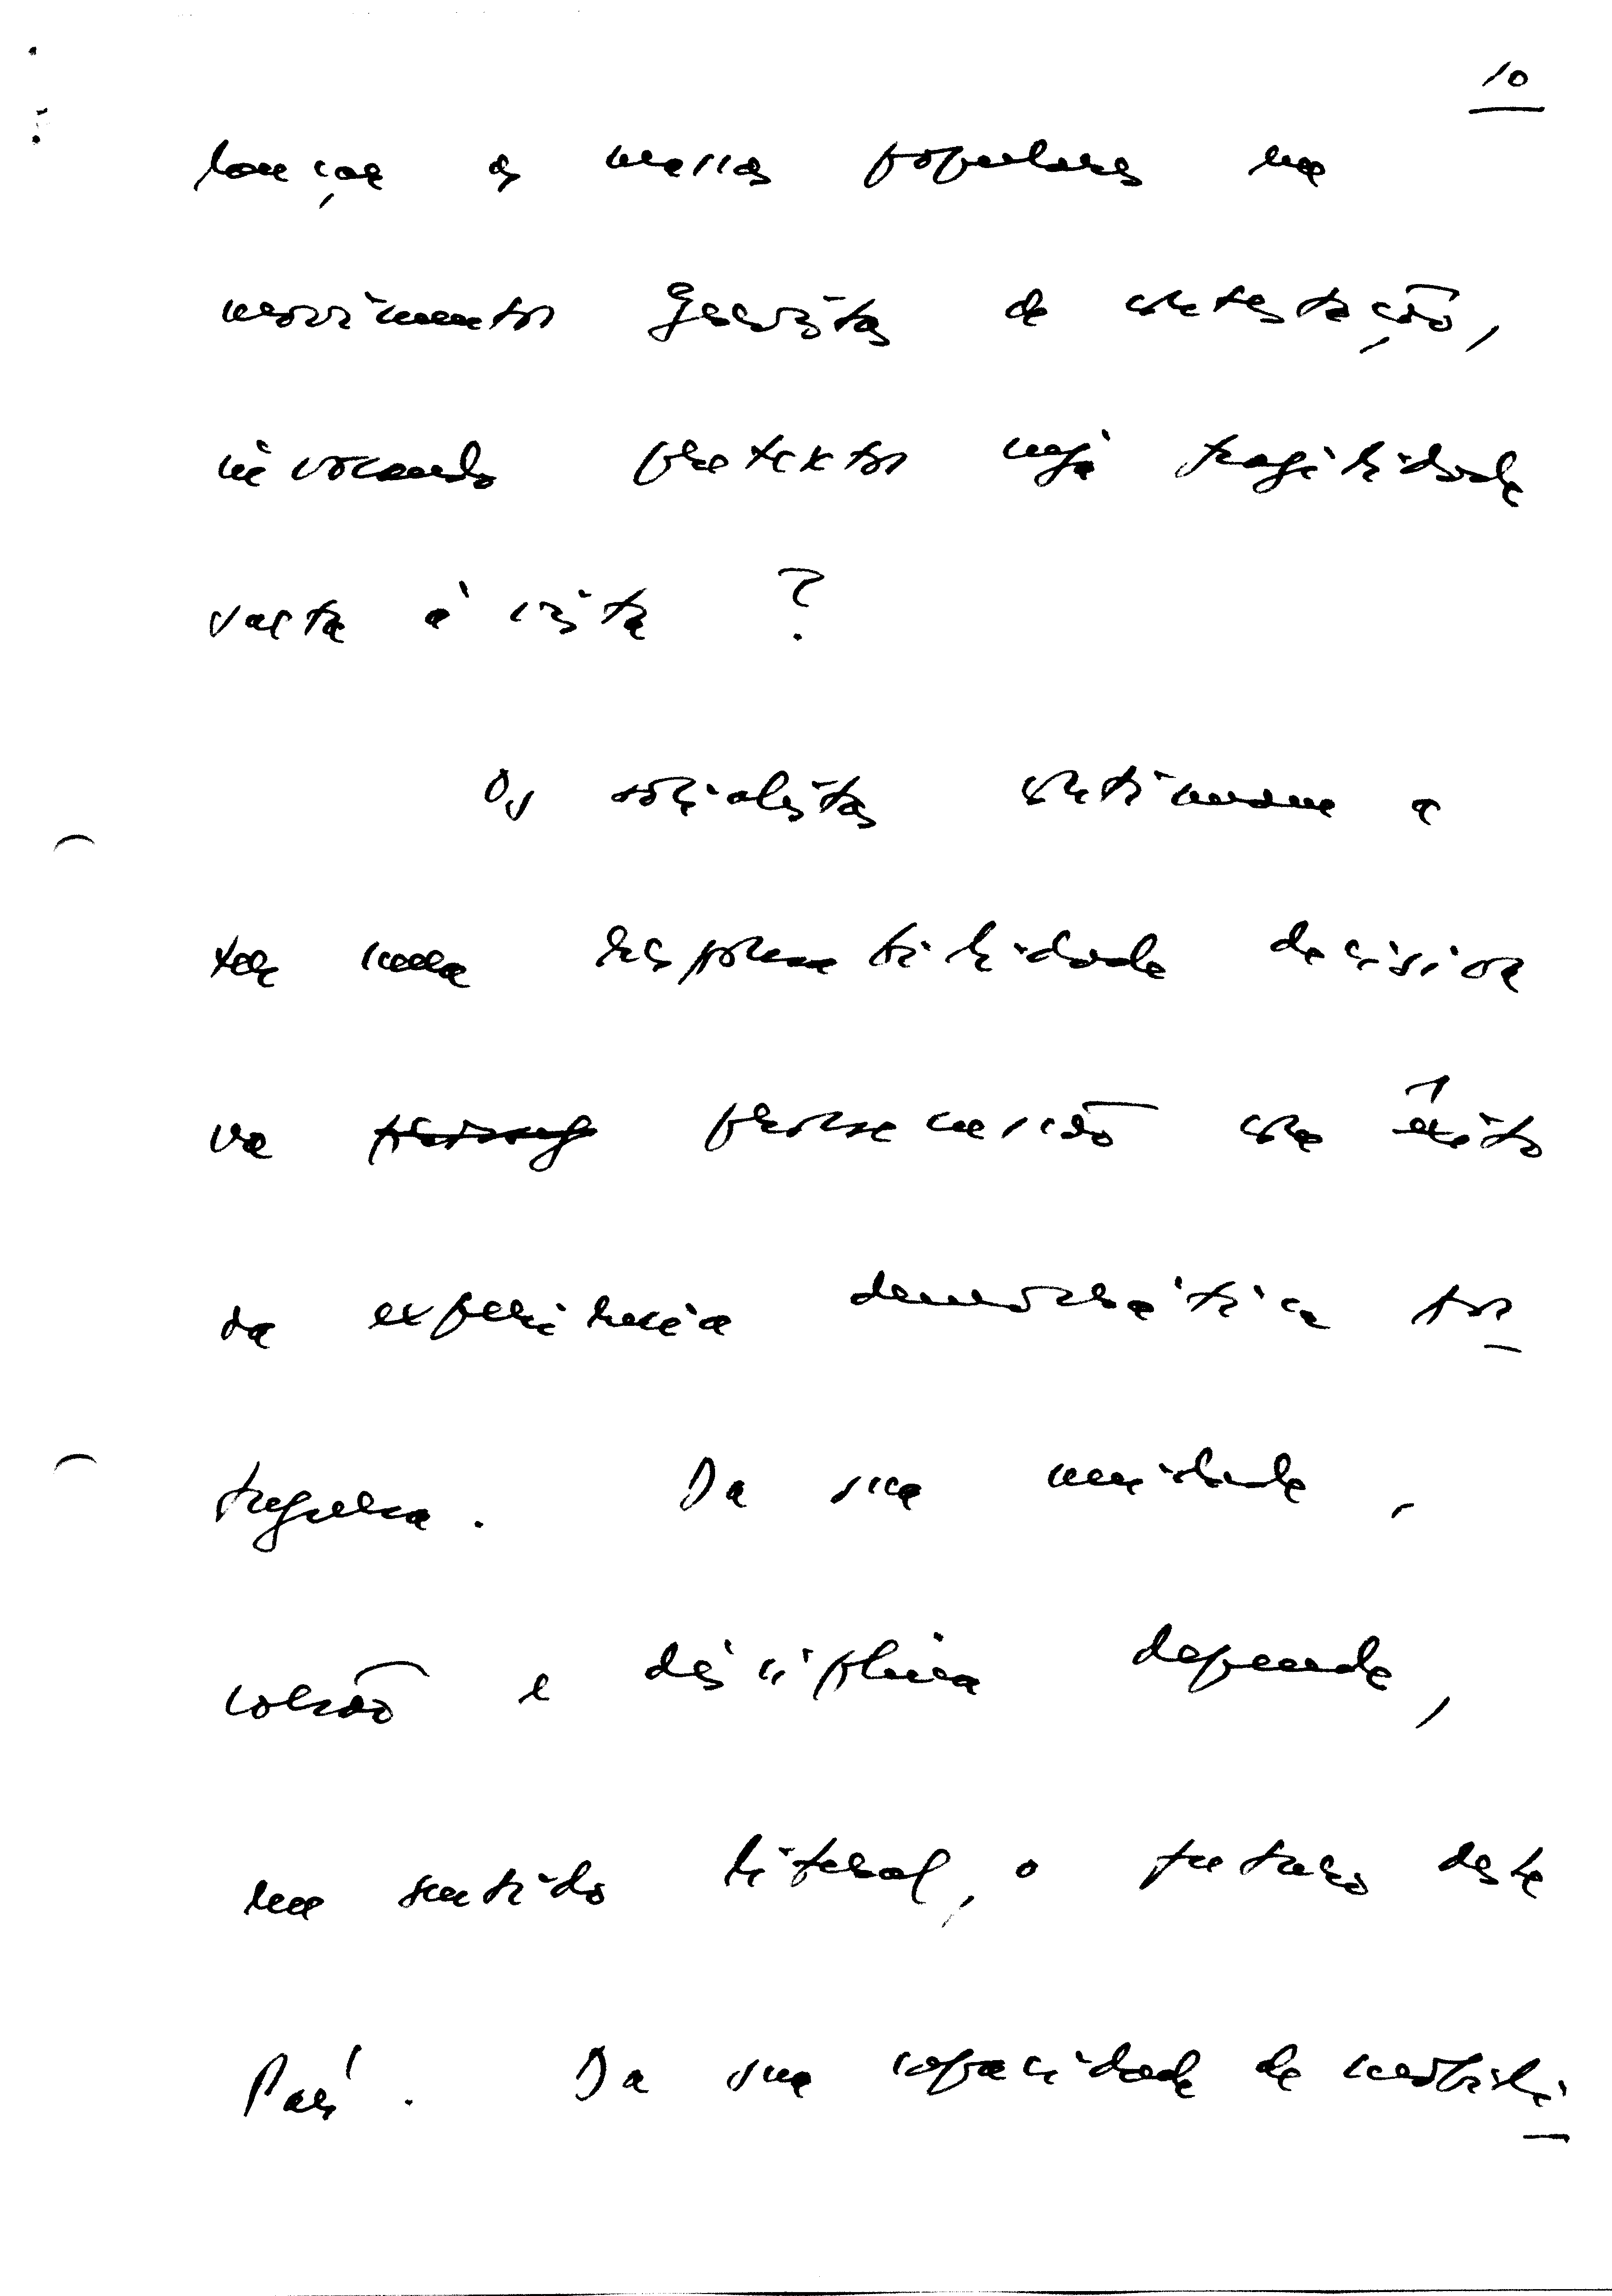 10
lançar as massas populares em
movimentos grevistas de contestação,
invocando pretextos cuja fragilidade
salta à vista ?
Os socialistas continuam a
ter uma responsabilidade decisiva
na prossecussão com êxito
da experiência democrática por
tuguesa. Da sua unidade,
coesão e disciplina depende,
em sentido literal, o futuro deste
País. Da sua capacidade de mobili